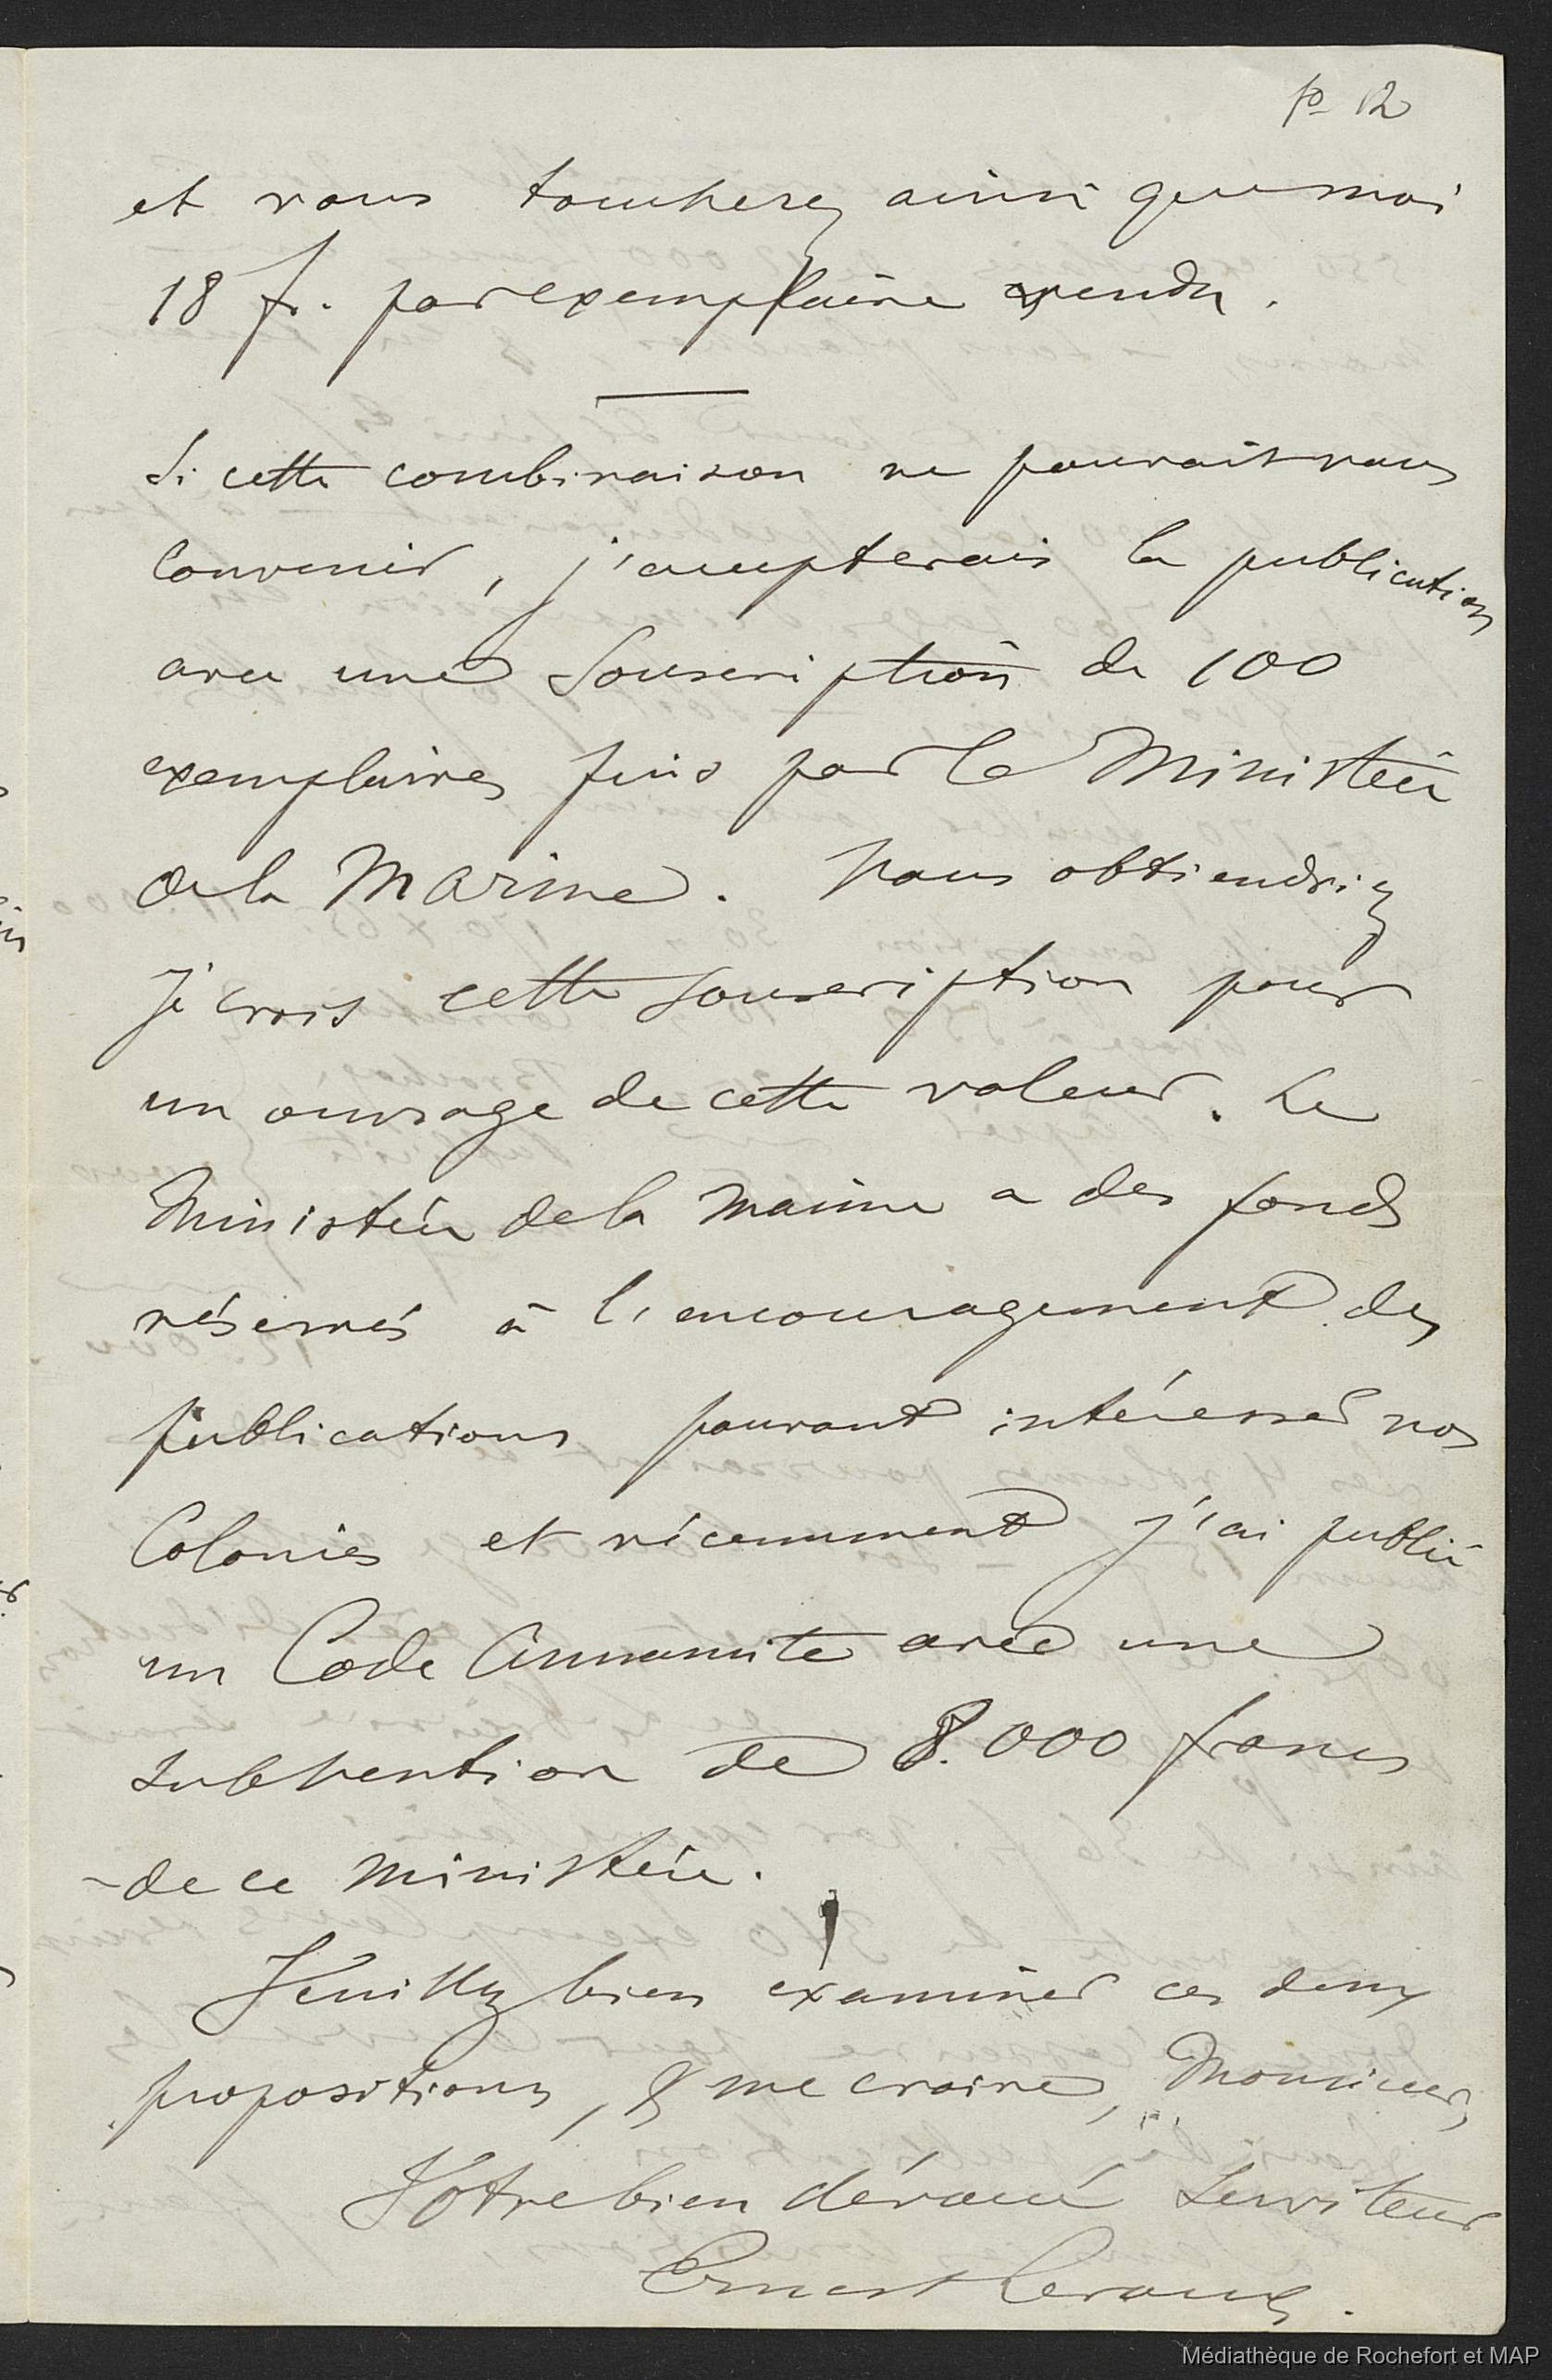 p. 12
et vous toucherez ainsi que moi
18 fr. par exemplaire vendu.
Si cette combinaison ne pouvait vous
convenir, j'accepterais la publication
avec une souscription de 100
exemplaires pris par le Ministère
de la Marine. Vous obtiendriez
je crois cette souscription pour
un ouvrage de cette valeur. Le
Ministère de la Marine a des fonds
réservés à l'encouragement des
publications pouvant intéresser nos
Colonies et récemment j'ai publié
un Code Annamite avec une
subvention de 8.000 francs
de ce Ministère.
Veuillez bien examiner ces deux
propositions, & me croire, Monsieur,
Votre bien dévoué serviteur
Ernest Leroux.
Médiathèque de Rochefort et MAP